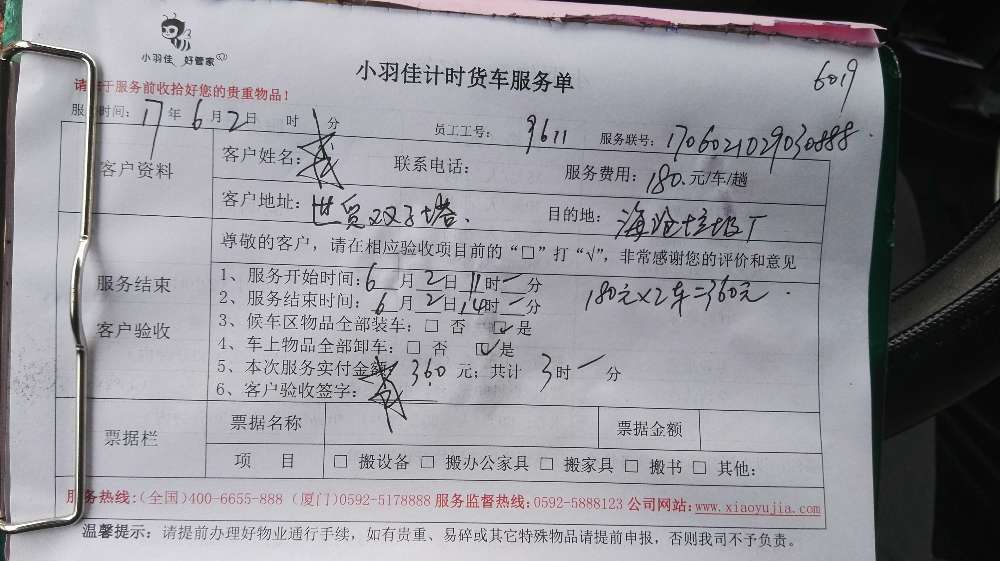 小羽佳 好管家
小羽佳计时货车服务单
6019
请于服务前收拾好您的贵重物品！
服务时间：17年6月2日 时 分 员工工号：9611 服务联号：1706021029030888
客户资料 客户姓名： 联系电话： 服务费用：180.元/车/趟
客户地址：世贸双子塔. 目的地：海沧垃圾厂
尊敬的客户，请在相应验收项目前的“□”打“√”，非常感谢您的评价和意见
服务结束
客户验收
1、服务开始时间：6月2日11时一分 180元×2车=360元.
2、服务结束时间：6月2日14时一分
3、候车区物品全部装车：□ 否 ☑是
4、车上物品全部卸车：□ 否 ☑是
5、本次服务实付金额：360元；共计 3时一分
6、客户验收签字：
票据栏 票据名称 票据金额
项 目 □ 搬设备 □ 搬办公家具 □ 搬家具 □ 搬书 □ 其他：
服务热线：(全国)400-6655-888 (厦门)0592-5178888 服务监督热线：0592-5888123 公司网站：www.xiaoyujia.com
温馨提示：请提前办理好物业通行手续，如有贵重、易碎或其它特殊物品请提前申报，否则我司不予负责。